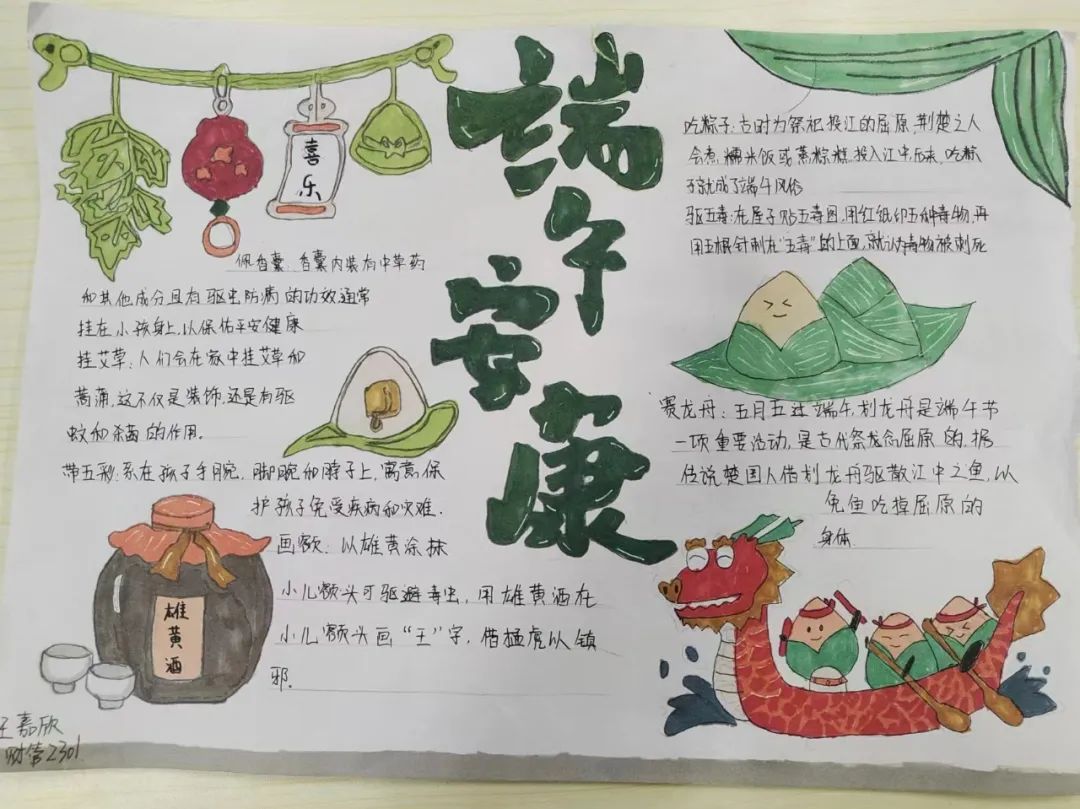 端午安康
喜乐
佩香囊：香囊内装有中草药
和其他成分且有驱虫防病的功效通常
挂在小孩身上,以保佑平安健康
挂艾草：人们会在家中挂艾草和
菖蒲,这不仅是装饰,还是有驱
蚊和杀菌的作用。
带五彩:系在孩子手腕,脚腕和脖子上,寓意保
护孩子免受疾病和灾难.
画额：以雄黄涂抹
小儿额头可驱避毒虫,用雄黄酒在
小儿额头画“王”字,借猛虎以镇
邪.
雄黄酒
王嘉欣
财管2301
吃粽子:古时为祭祀投江的屈原,荆楚之人
会煮糯米饭或蒸粽糕投入江中,后来,吃粽
子就成了端午风俗
驱五毒:在屋子贴五毒图,用红纸印五种毒物,再
用五根针刺在“五毒”的上面,就认为毒物被刺死
赛龙舟：五月五过端午,划龙舟是端午节
一项重要活动,是古代祭龙念屈原的,据
传说楚国人借划龙舟驱散江中之鱼,以
免鱼吃掉屈原的
身体